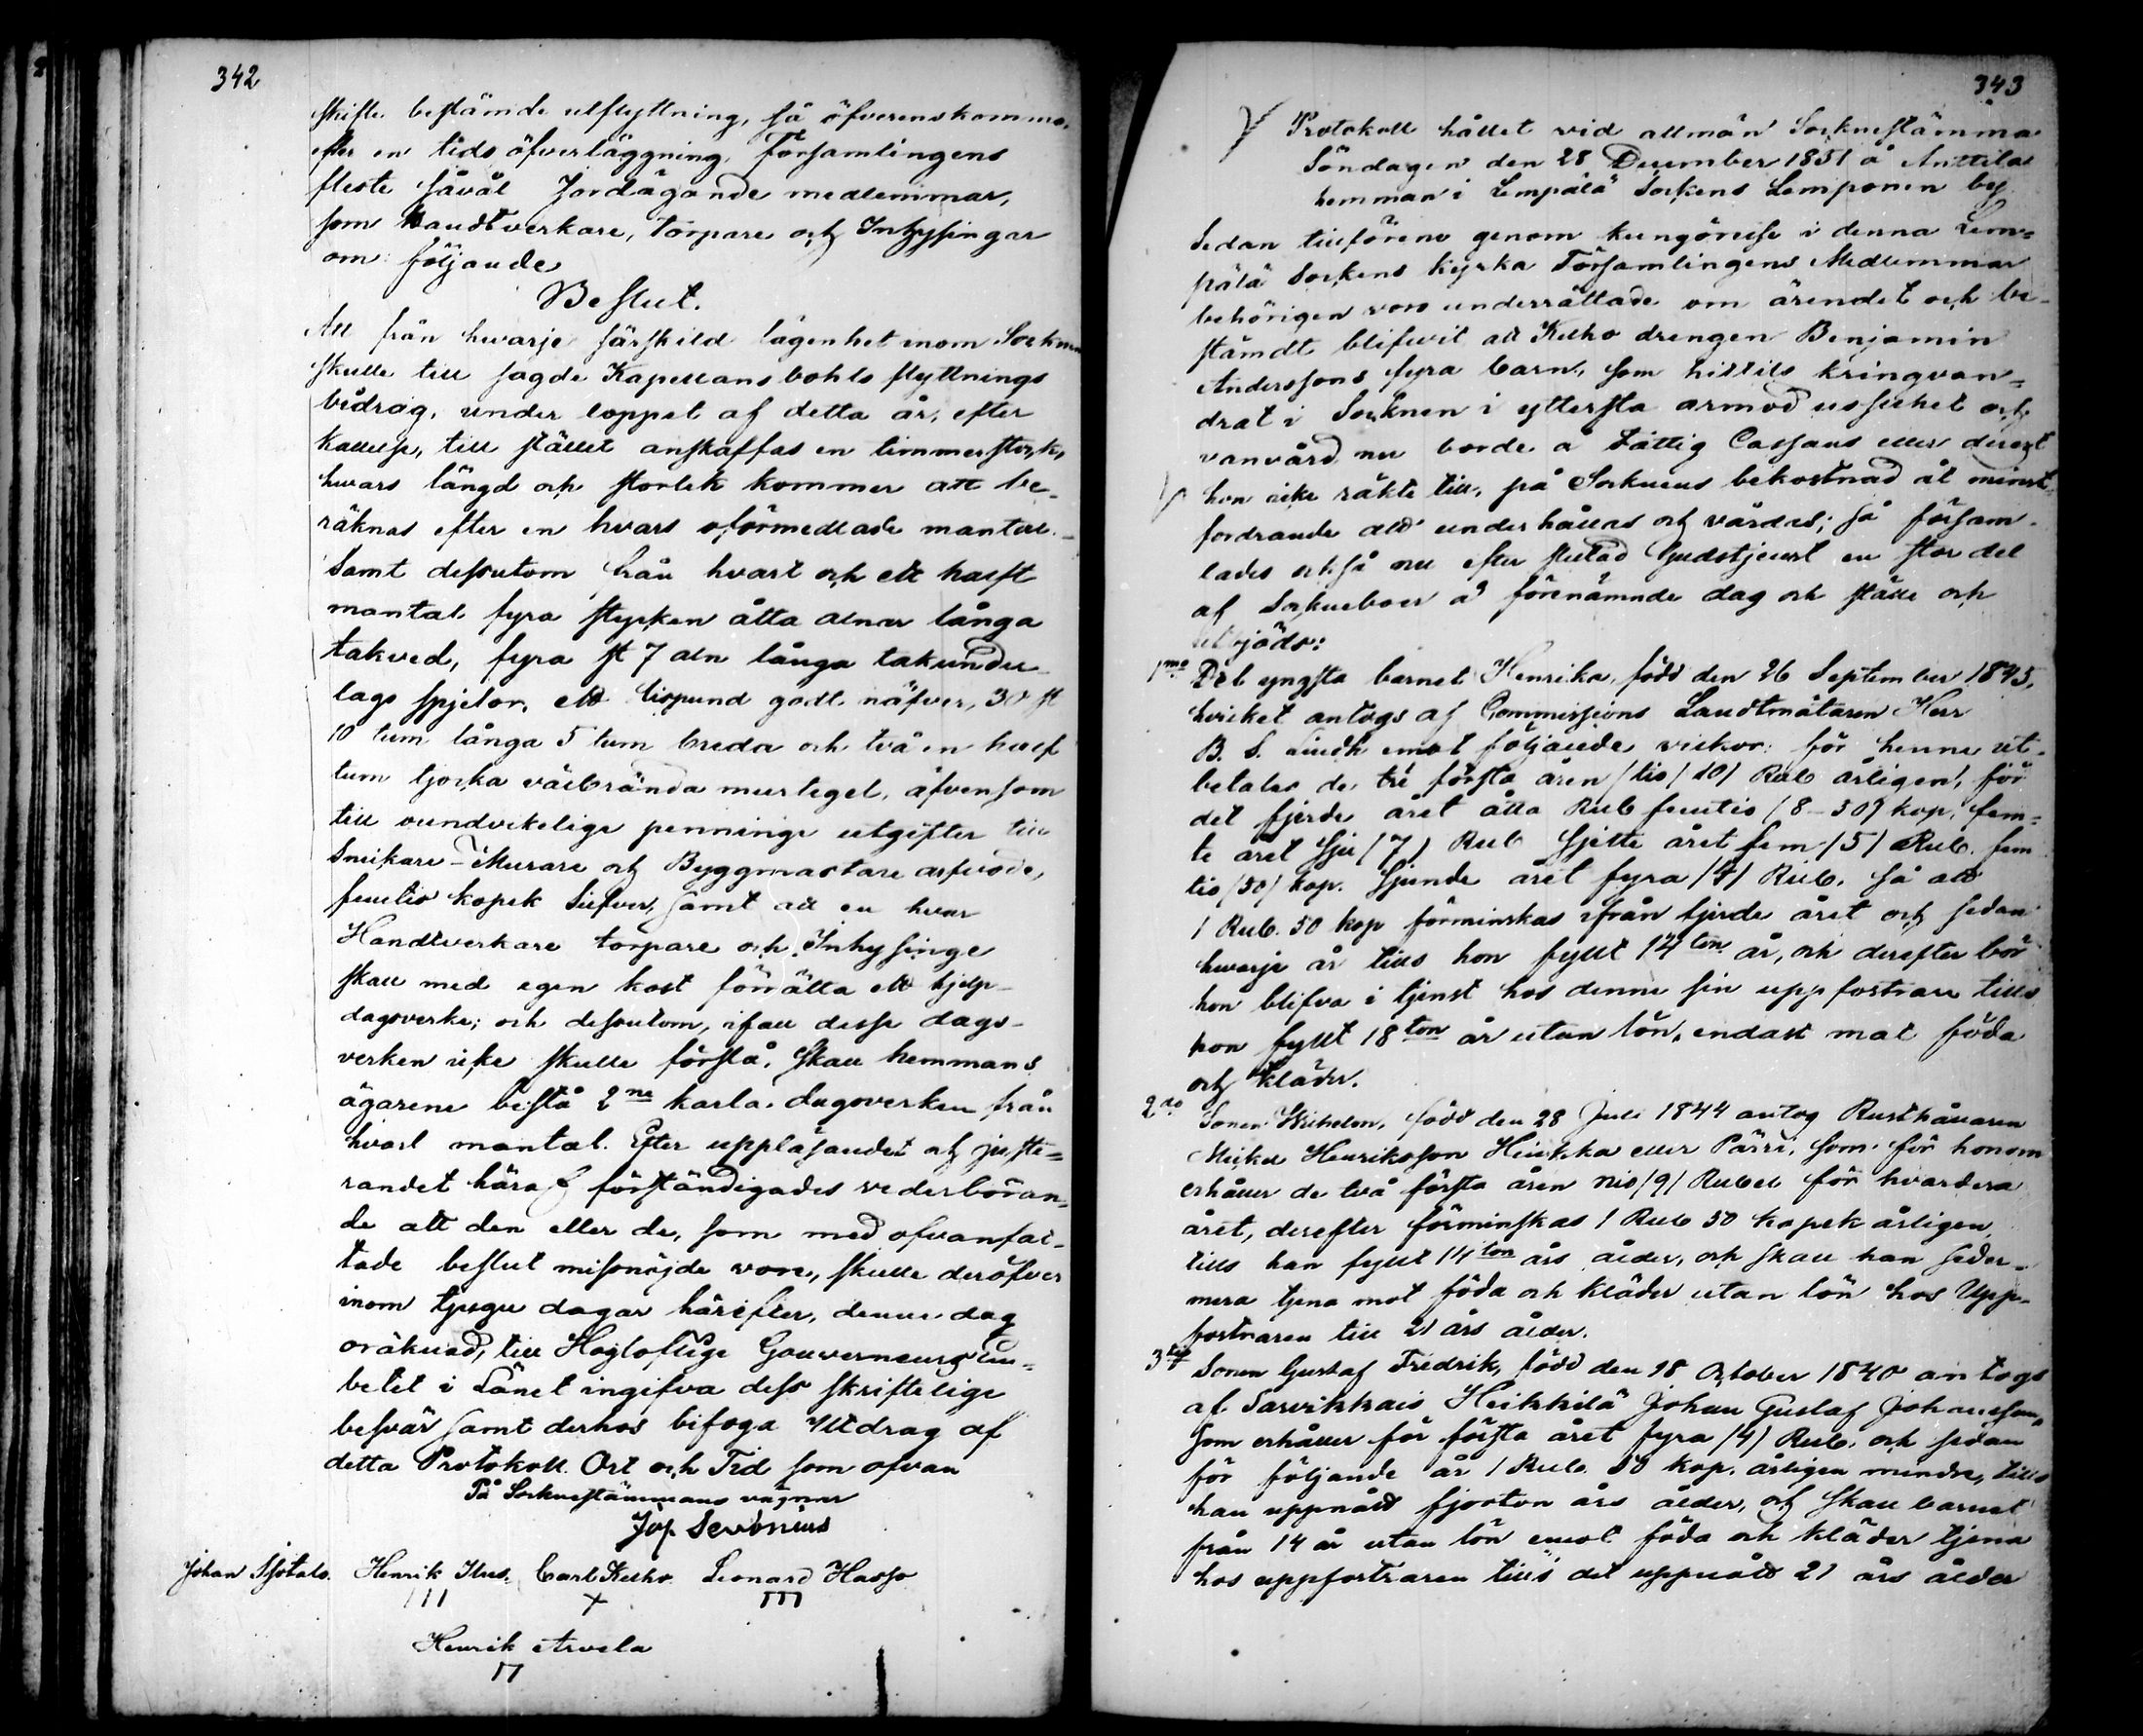 342
skifte bestämde utflyttning, så öfverenskommo,
efter en tids öfverläggning, Församlingens
fleste såväl Jordägande medlemmar,
som Handtverkare, Torpare och Inhysingar
om följande
Beslut.
Att från hvarje särskild lägenhet inom Socknen
skulle till sagde Kapellansbohls flyttnings
bidrag, under loppet af detta år, efter
kallelse, till stället anskaffas en timmerstock,
hvars längd och storlek kommer att be-
räknas efter en hvars oförmedlade mantal. -
Samt dessutom från hvart och ett halft
mantal fyra stycken åtta alnar långa
takved, fyra st 7 aln långa takunder
lags spjelor, ett lispund godt näfver, 30 st
10 tum långa 5 tum breda och två en half
tum tjocka välbrända murtegel, äfvensom
till oundvikelige penninge utgifter till
Snickare - Murare och Byggmästare arfvode,
femtio kopek Silfver, samt att en hvar
Handtverkare torpare och Inhysinge
skall med egen kost förrätta ett hjelp-
dagsverke; och dessutom, ifall desse dags-
verken icke skulle förslå, skall hemmans
ägarene bestå 2ne karla dagsverken från
hvart mantal. Efter uppläsandet och juste=
randet häraf förständigades vederböran-
de att den eller de, som med ofvanfat-
tade beslut missnöjde vore, skulle deröfver
inom tjugu dagar härefter, denne dag
oräknad, till Högloflige Gouverneurs Em-
betet i Länet ingifva dess skriftelige
besvär samt derhos bifoga Utdrag af
detta Protokoll. Ort och Tid som ofvan
På Sockenstämmans vägnar
Jos. Sevonius
Johan Sjötalo. Henrik Ilus. Carl Kelho Leonard Hasso
III X III
Henrik Arvela
П
343
Protokoll hållet vid allmän Sockenstämma
Söndagen den 28 December 1851 å Anttila
hemman i Lempälä Sockens Lemponen by
Sedan tillförene genom kungörelse i denna Lem=
pälä Sockens kyrka Församlingens Medlemmar
behörigen voro underrättade om ärendet och be-
stämdt blifvit att Kelho drengen Benjamin
Anderssons fyra barn, som hittils kringvan=
drat i Socknen i yttersta armod usselhet och
vanvård nu borde å Fattig Cassans eller derest
hon icke räkte till, på Socknens bekostnad åt minst
fordrande att underhållas och vårdas; så försam-
lades också nu efter slutad Gudstjenst en stor del
af Sockneboer å förenämnde dag och ställe och
utbjöds:
1mo Det yngsta barnet Henrika, född den 26 September 1845,
hvilket antogs af Commissions Landtmätaren Herr
B. S. Lindh emot följande vilkor: för henne ut-
betales de tre första åren /tio/ 10/ Rub årligen, för
det fjerde året åtta Rub femtio /8-50/ kop, fem=
te året sju /7/ Rub sjette året fem /5/ Rub. fem
tio /50/ kop. sjunde året fyra /4/ Rub. så att
1 Rub. 50 kop förminskas ifrån fjerde året och sedan
hvarje år tills hon fyllt 14ton år, och derefter bör
hon blifva i tjenst hos denne sin uppfostrare tills
hon fyllt 18ton år utan lön, endast mat föda
och kläder.
2do Sonen Wilhelm, född den 28 Juli 1844 antog Rusthållaren
Mickel Henriksson Heikka eller Pärri, som för honom
erhåller de två första åren nio /9/ Rubel för hvardera
året, derefter förminskas 1 Rub 50 kopek årligen,
tills han fyllt 14ton års ålder, och skall han seder-
mera tjena mot föda och kläder utan lön hos Upp-
fostraren till 21 års ålder.
3tio Sonen Gustaf Fredrik, född den 18 October 1840 antogs
af Sarvikkais Heikkilä Johan Gustaf Johansson,
som erhåller för första året fyra /4/ Rub. och sedan
för följande år 1 Rub. 50 kop. årligen mindre, tills
han uppnått fjorton års ålder, och skall barnet
från 14 år utan lön emot föda och kläder tjena
hos uppfostraren tills det uppnått 21 års ålder